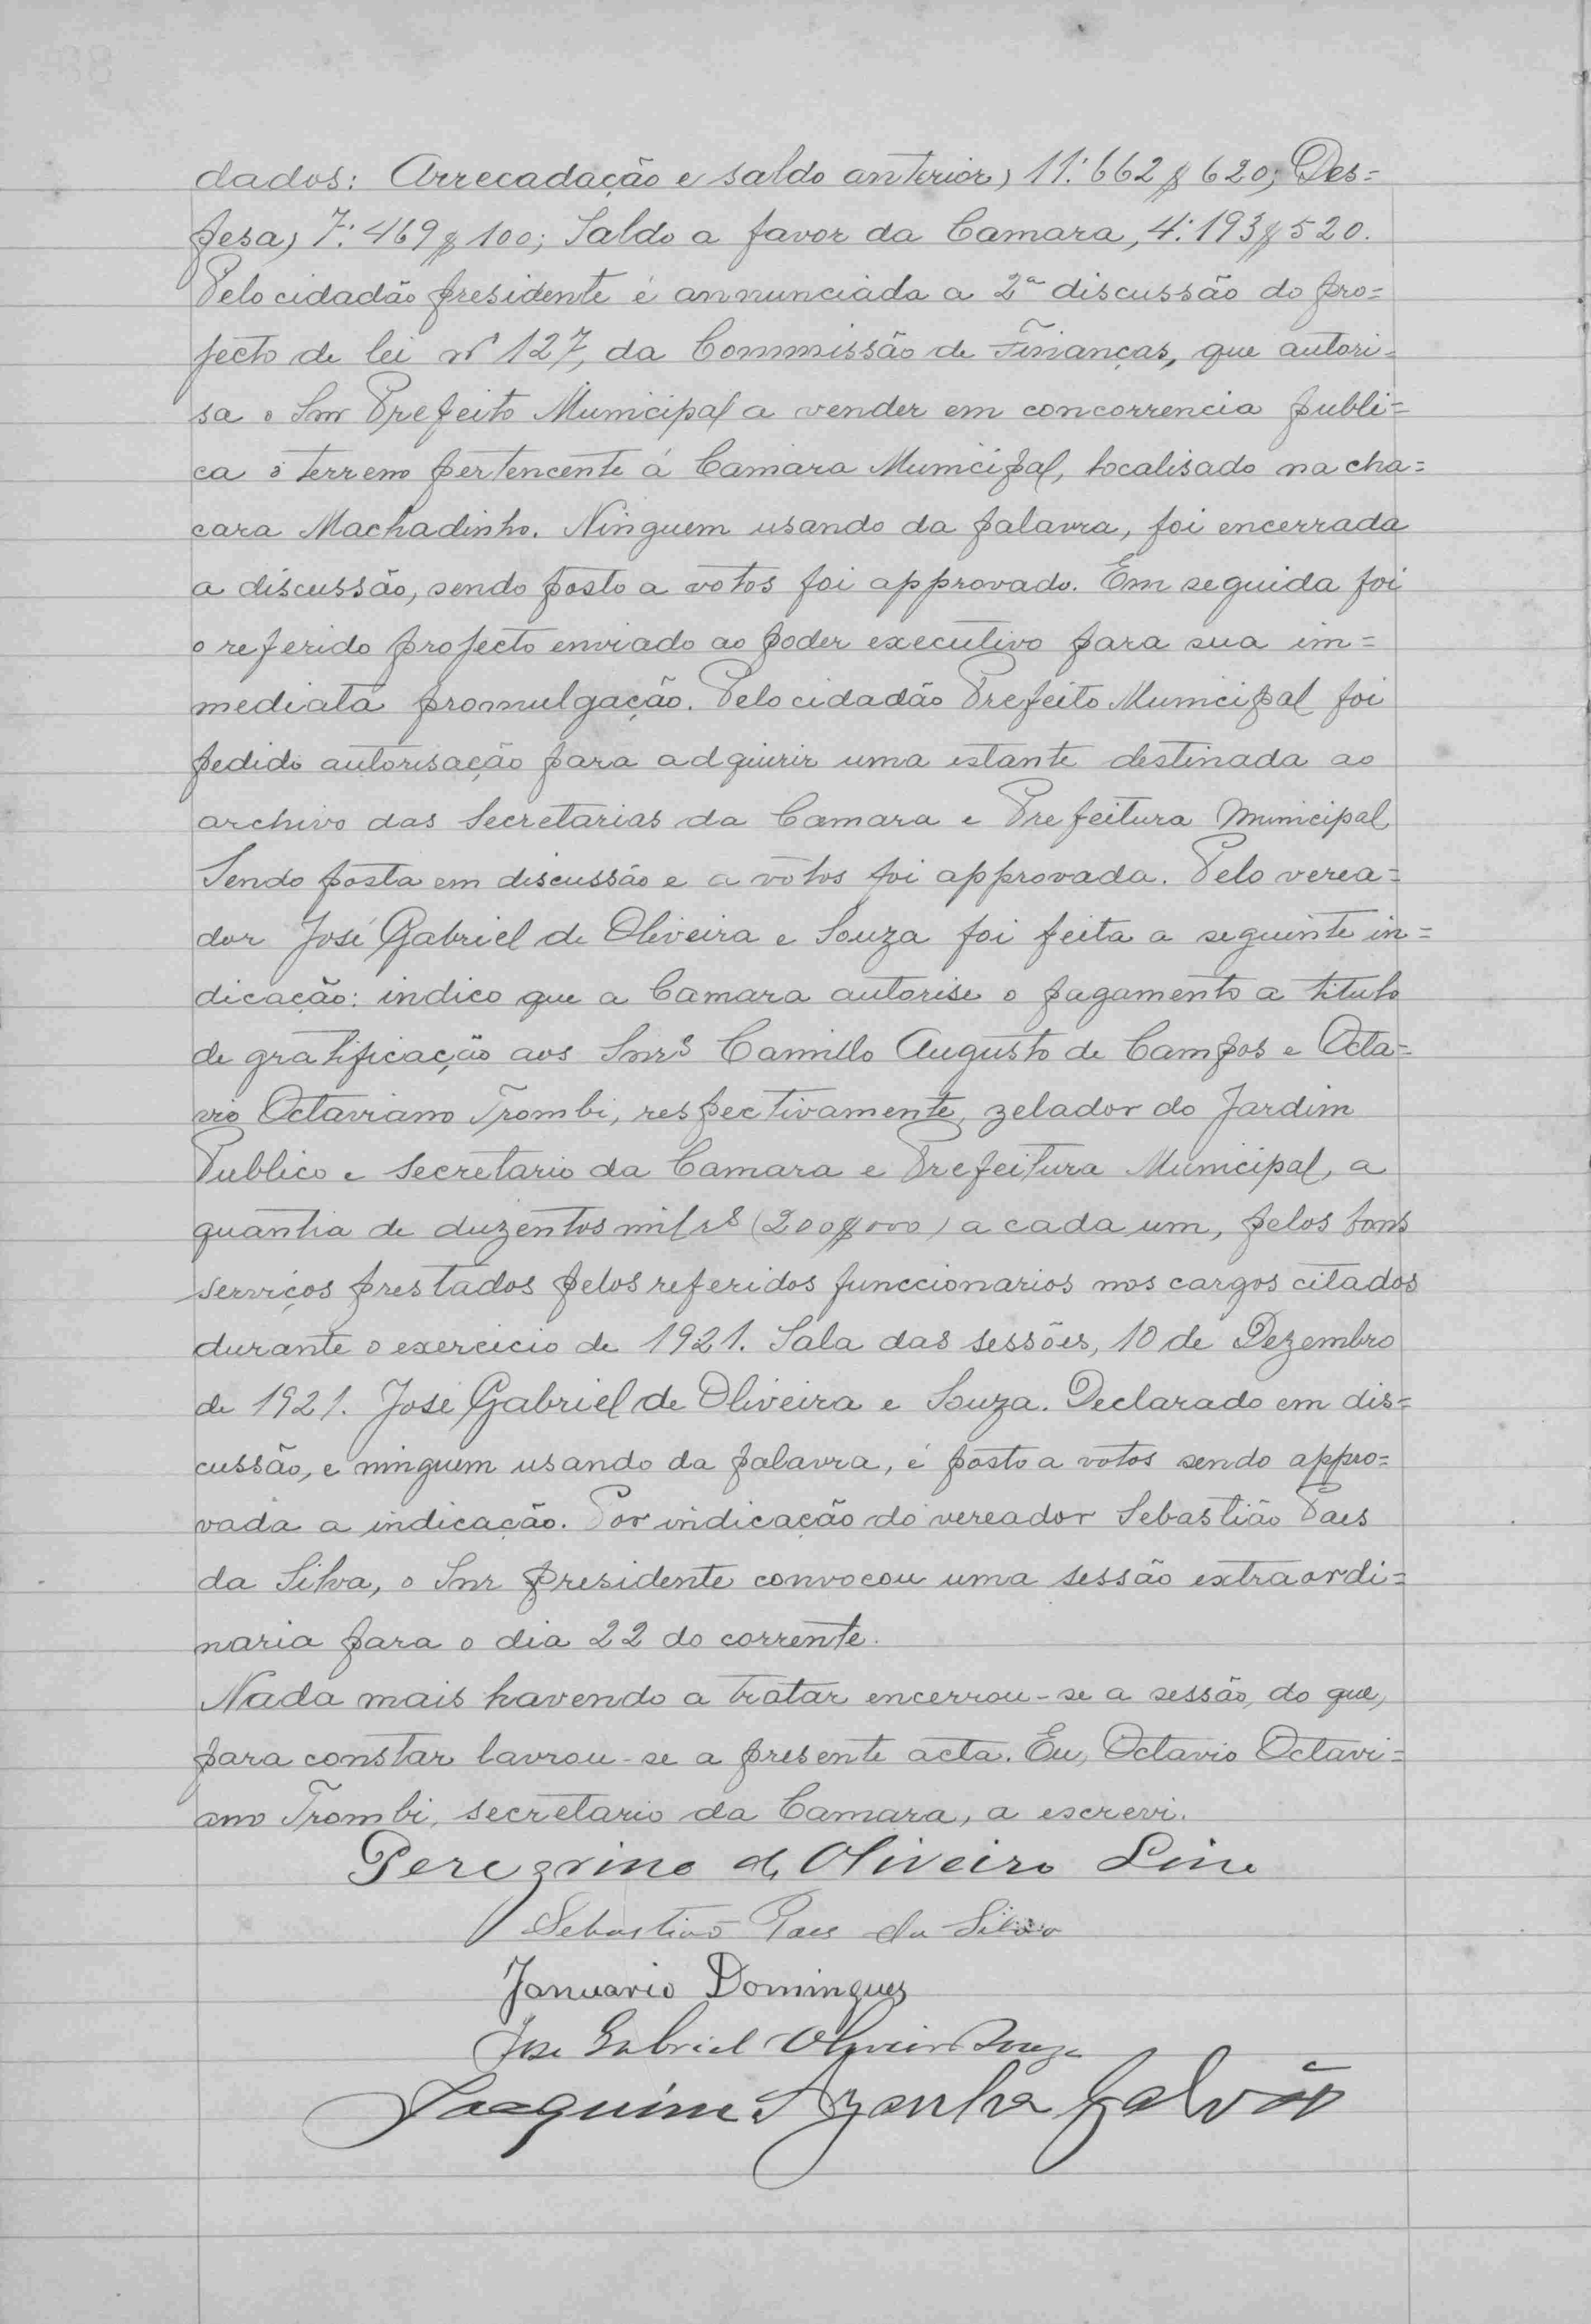 dados: Arrecadação e saldo anterior, 11:662$620; Des=
pesa, 7:469$100; Saldo a favor da Camara, 4:193$520.
Pelo cidadão presidente é annunciada a 2ª discussão do pro=
jecto de lei nº 127, da Commissão de Finanças, que autori=
sa o Snr Prefeito Municipal a vender em concorrencia publi=
ca o terreno pertencente á Camara Municipal, localisado na cha=
cara Machadinho. Ninguem usando da palavra, foi encerrada
a discussão, sendo posto a votos foi approvado. Em seguida foi
o referido projecto enviado ao poder executivo para sua im=
mediata promulgação. Pelo cidadão Prefeito Municipal foi
pedido autorisação para adquirir uma estante destinada ao
archivo das Secretarias da Camara e Prefeitura Municipal
Sendo posta em discussão e a votos foi approvada. Pelo verea=
dor José Gabriel de Oliveira e Souza foi feita a seguinte in=
dicação: indico que a Camara autorise o pagamento a titulo
de gratificação aos Snrs Camillo Augusto de Campos e Octa=
vio Octaviano Trombi, respectivamente, zelador do Jardim
Publico e Secretario da Camara e Prefeitura Municipal, a
quantia de duzentos mil rs (200$000) a cada um, pelos bons
serviços prestados pelos referidos funccionarios nos cargos citados
durante o exercicio de 1921. Sala das sessões, 10 de Dezembro
de 1921. José Gabriel de Oliveira e Souza. Declarado em dis=
cussão, e ninguem usando da palavra, é posto a votos sendo appro=
vada a indicação. Por indicação do vereador Sebastião Paes
da Silva, o Snr presidente convocou uma sessão extraordi=
naria para o dia 22 do corrente.
Nada mais havendo a tratar encerrou-se a sessão, do que,
para constar lavrou-se a presente acta. Eu, Octavio Octavi=
ano Trombi, secretario da Camara, a escrevi.
Peregrino de Oliveira Lino
Sebastião Paes da Silva
Januario Domingues
José Gabriel Oliveira Souza
Joaquim Azanha Galvão